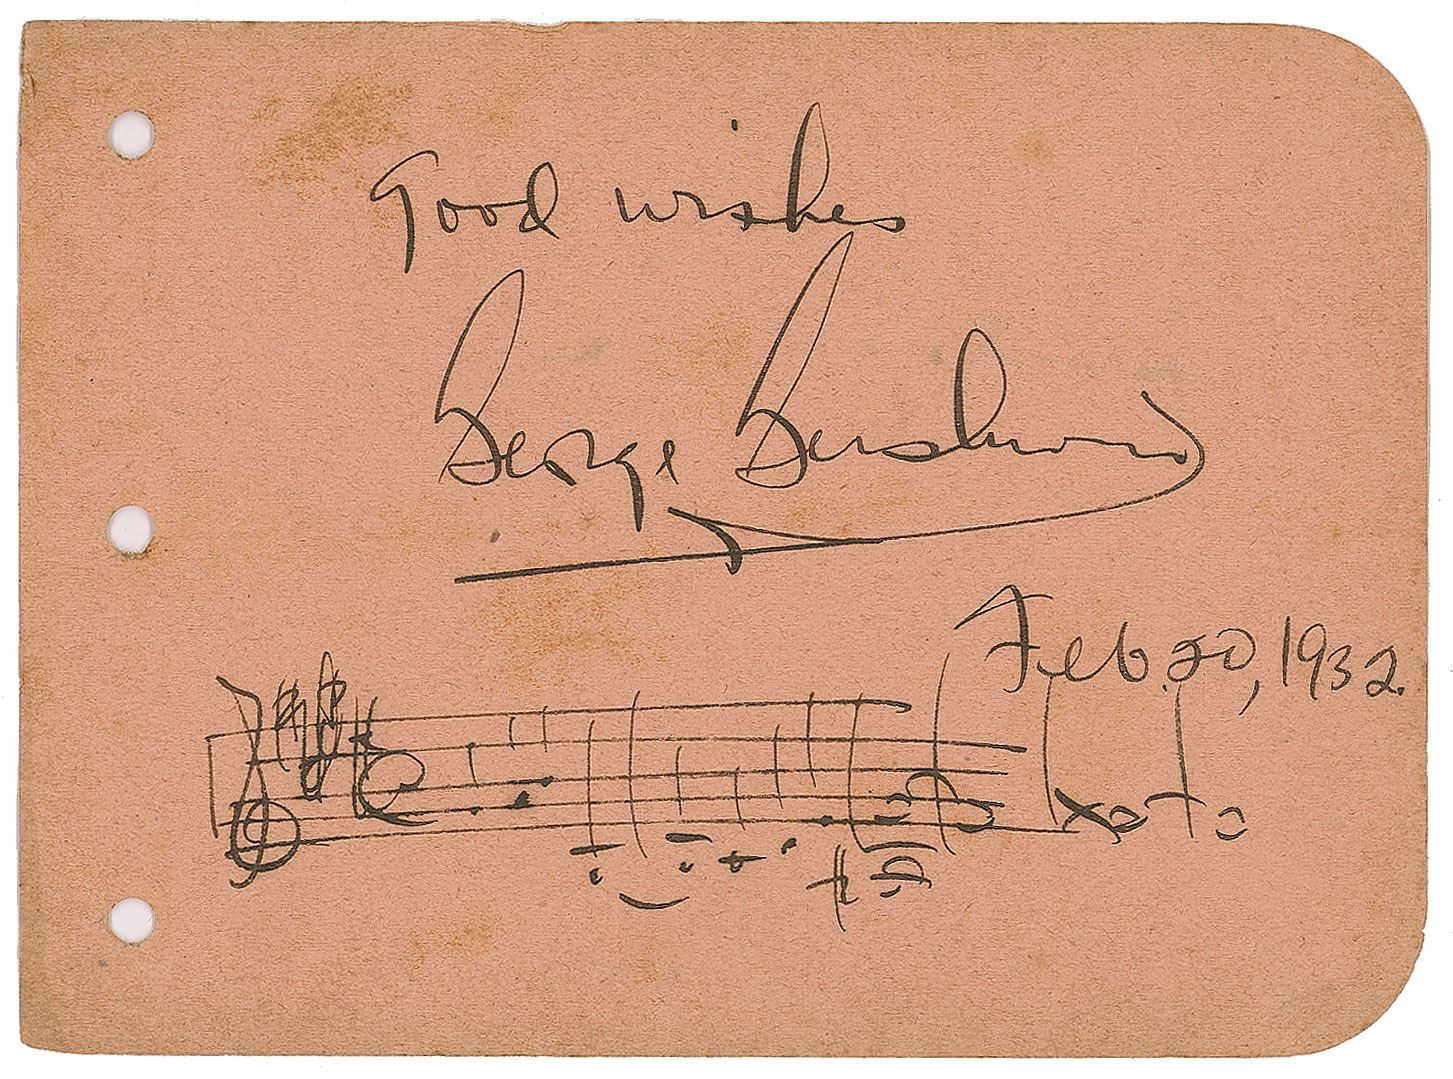 Good wishes
George Gershwin
Feb. 20, 1932.